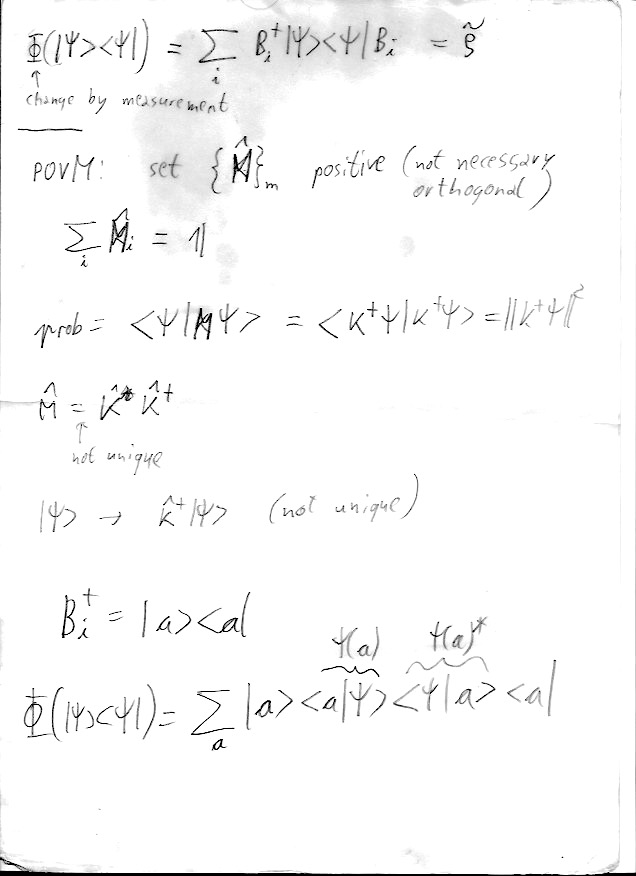 Φ(|Ψ><Ψ|) = Σ_i B_i^† |Ψ><Ψ| B_i = ρ̃
↑
change by measurement
POVM: set {M̂}_m positive (not necessary
orthogonal)
Σ_i M̂_i = 𝟙
prob = <Ψ|MΨ> = <K^†Ψ|K^†Ψ> = ||K^†Ψ||^2
M̂ = K̂ K̂^†
↑
not unique
|Ψ> → K̂^†|Ψ> (not unique)
B_i^† = |a><a|
Ψ(a) Ψ(a)*
Φ(|Ψ><Ψ|) = Σ_a |a><a|Ψ><Ψ|a><a|